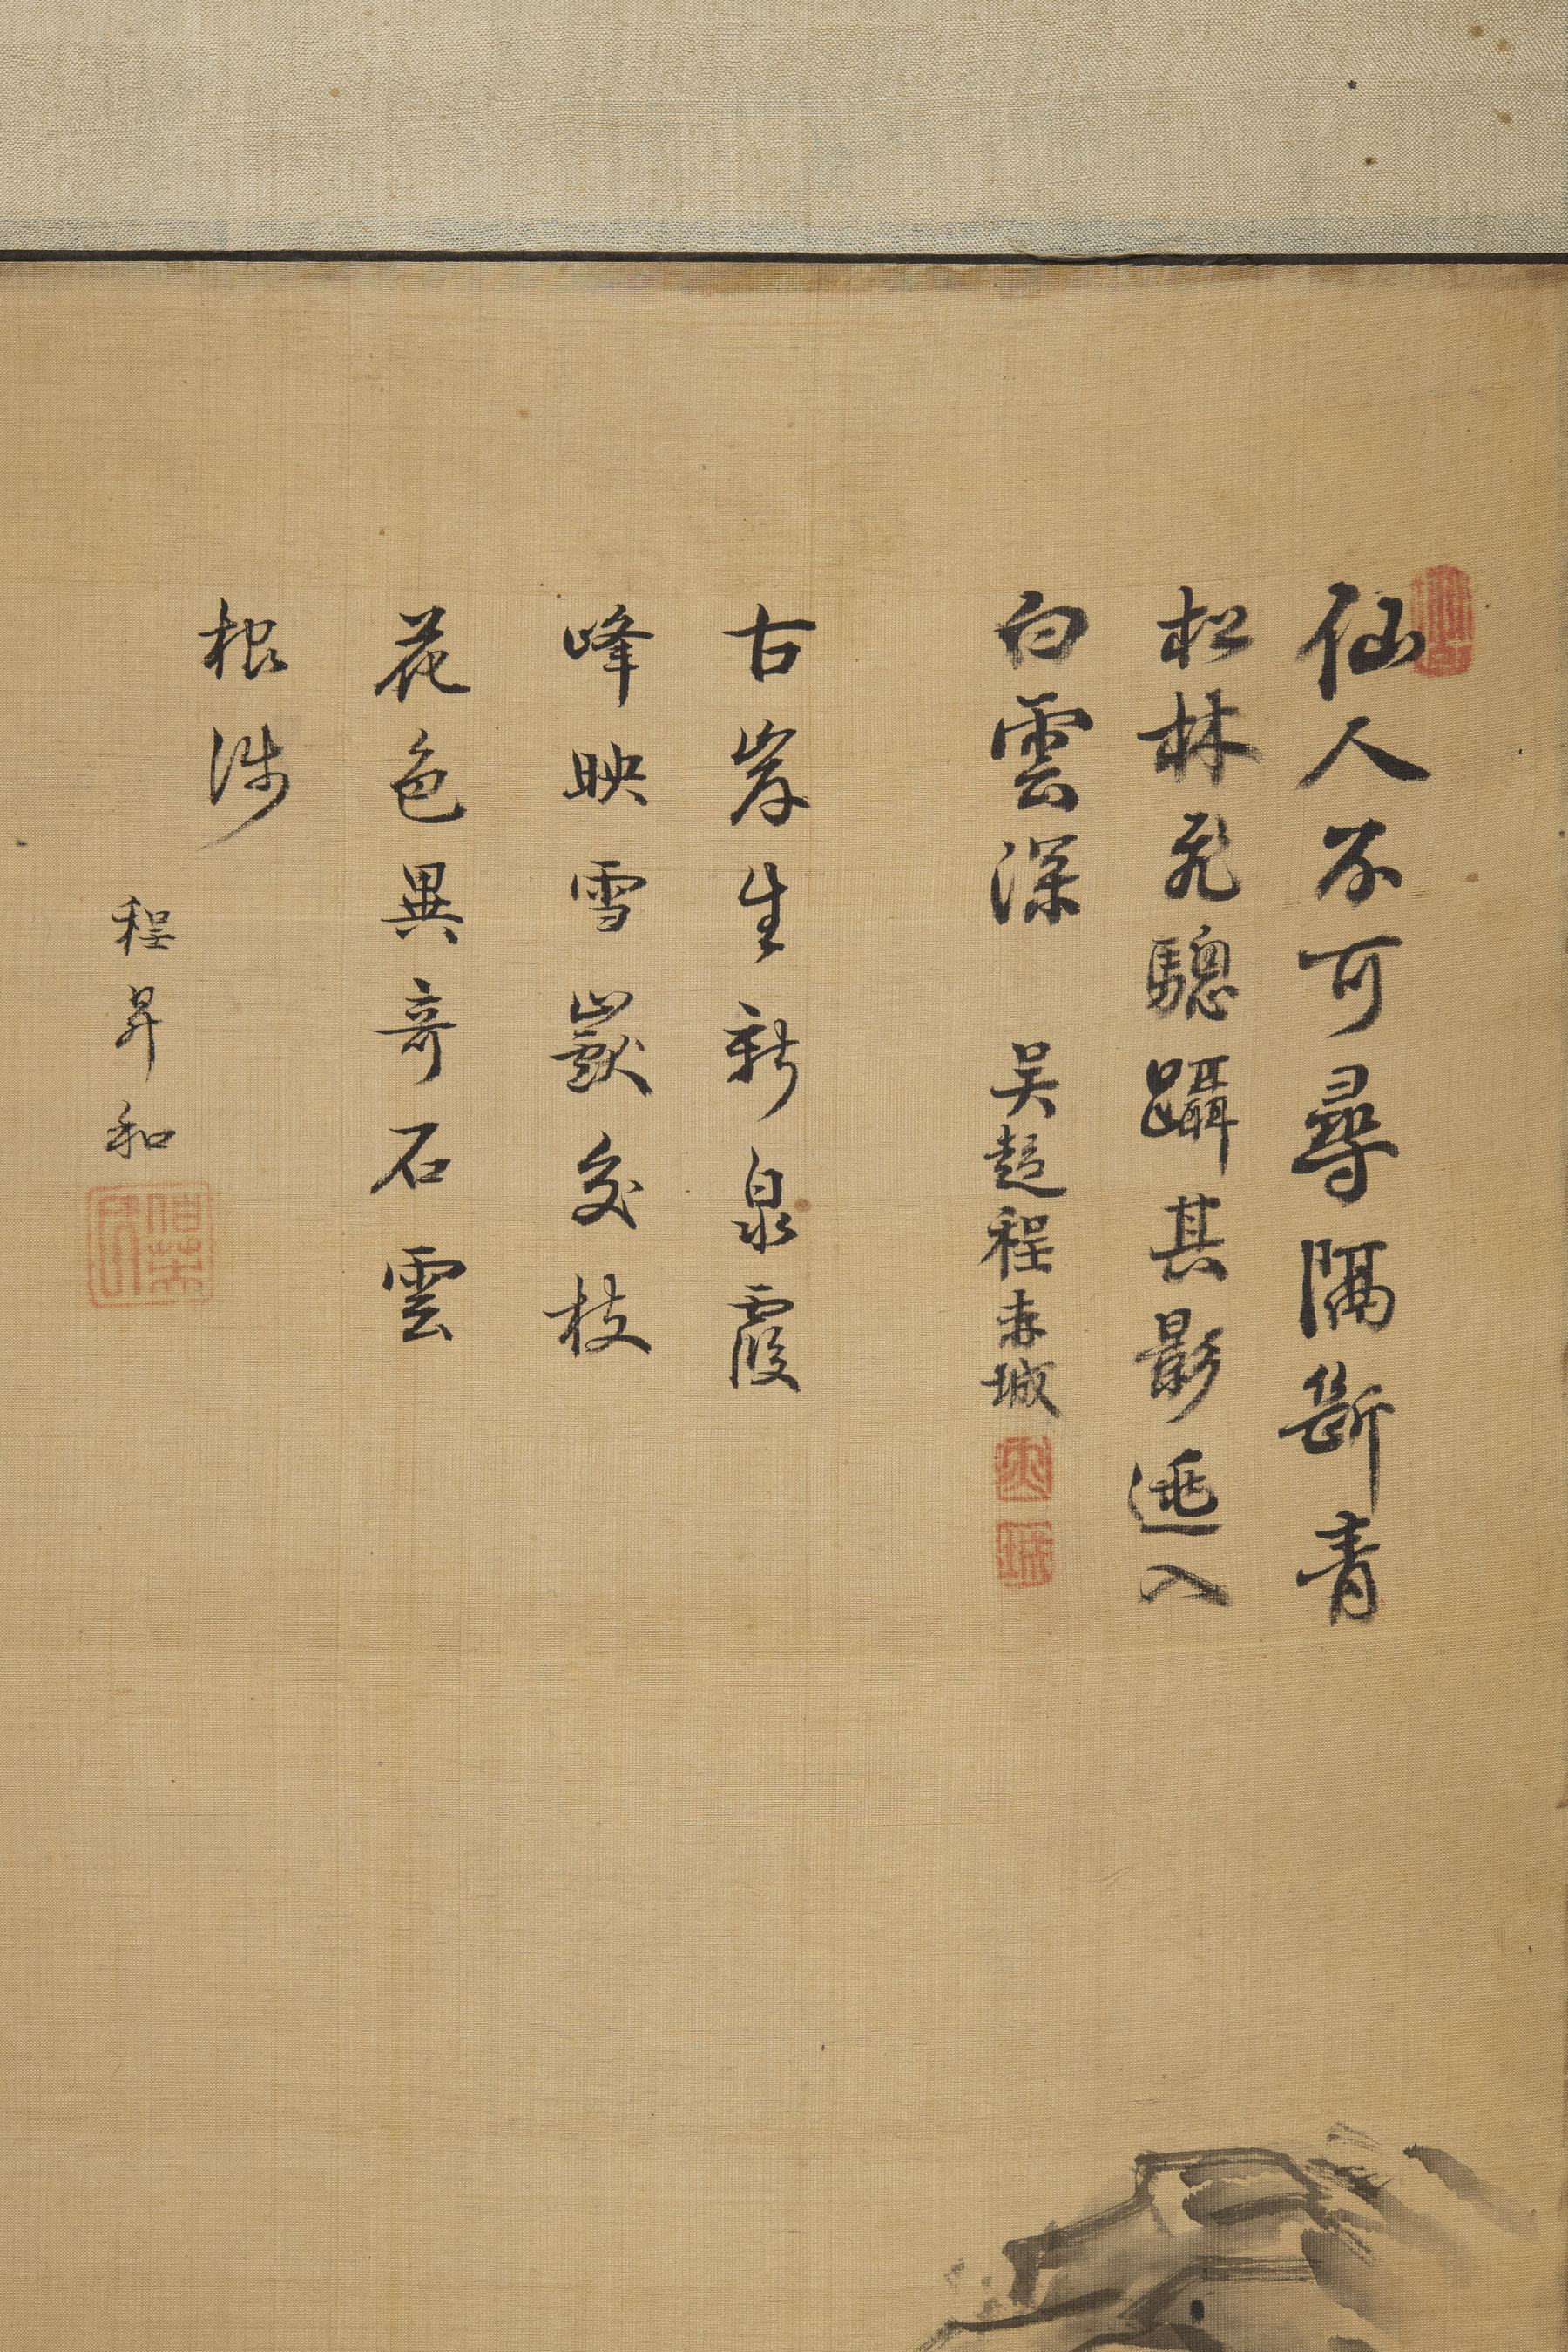 仙人不可尋隔斷青
松林飛驄躡其影遙入
白雲深 吳趨程赤城
古岸生新泉霞
峰映雪巖交枝
花色異奇石雲
根涉
程昇和